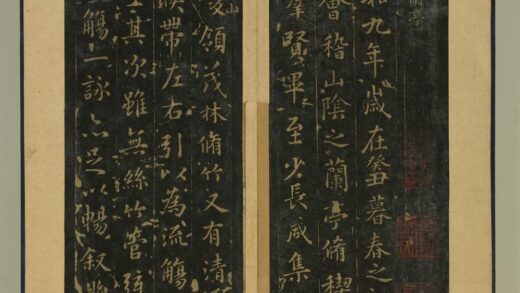 和九年歲在癸丑暮春之
會稽山陰之蘭亭脩稧
羣賢畢至少長咸集
峻領茂林脩竹又有清
暎帶左右引以為流觴
坐其次雖無絲竹管弦
觴一詠亦足以暢叙幽